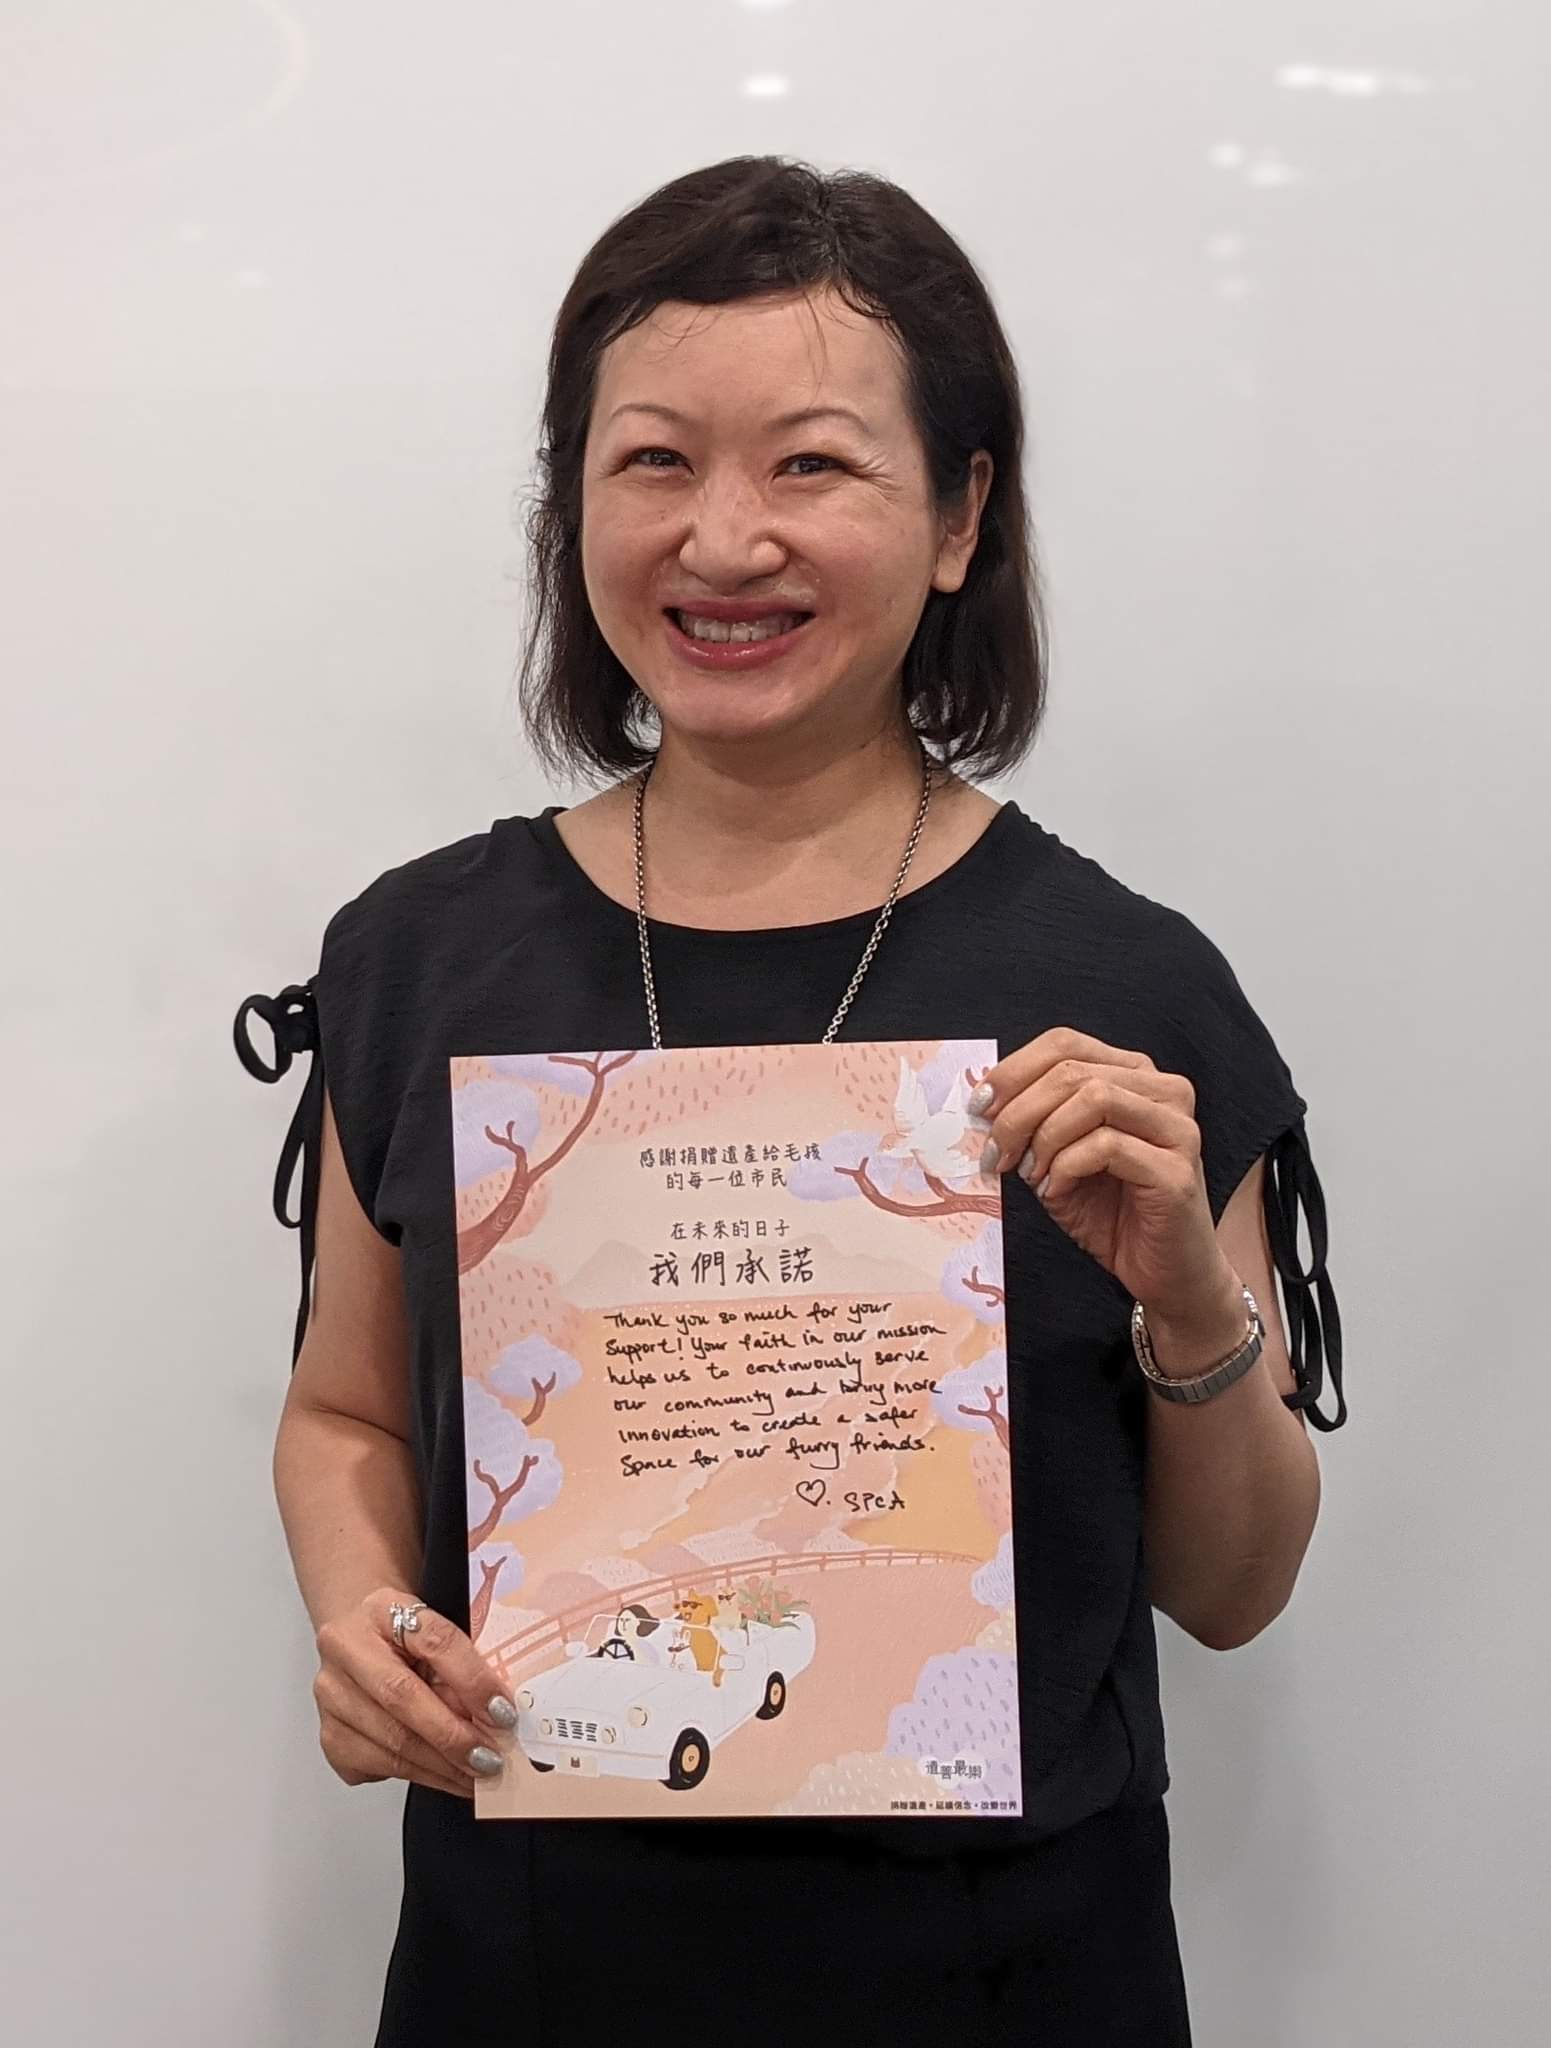 感謝捐贈遺產給毛孩
的每一位市民
在未來的日子
我們承諾
Thank you so much for your
support! Your faith in our mission
helps us to continuously serve
our community and bring more
innovation to create a safer
space for our furry friends.
♡. SPCA
遺善最樂
捐贈遺產•延續信念•改變世界